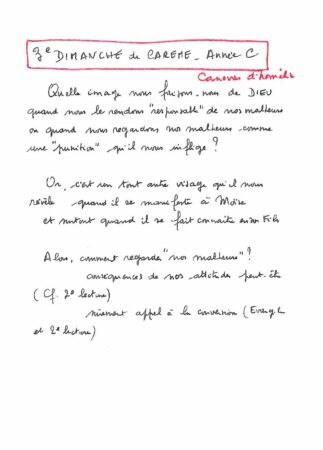 3e DIMANCHE de CARÊME - Année C
Canevas d'homélie
Quelle image nous faisons-nous de DIEU
quand nous le rendons "responsable" de nos malheurs
ou quand nous regardons nos malheurs comme
une "punition" qu'il nous inflige ?
Or, c'est un tout autre visage qu'il nous
révèle quand il se manifeste à Moïse
et surtout quand il se fait connaître en son Fils
Alors, comment regarder "nos malheurs" ?
conséquences de nos attitudes peut-être
(Cf. 2e lecture)
sûrement appel à la conversion (Evangile
et 2e lecture)